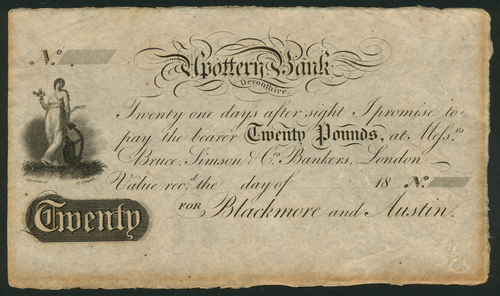 No.
Upottery Bank
Devonshire.
Twenty one days after sight I promise to
pay the bearer Twenty Pounds, at Mess.rs
Bruce, Simson & Co.s Bankers, London
Value rec.d the day of 18 No.
Twenty FOR Blackmore and Austin.